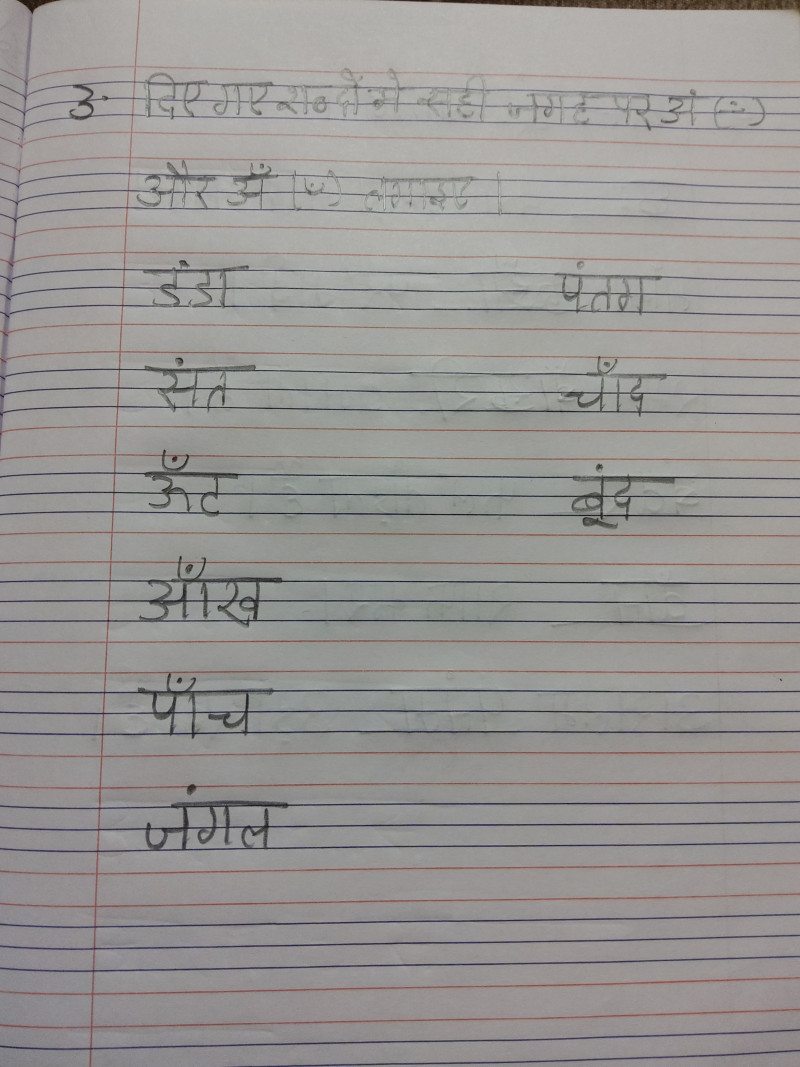 3. दिए गए शब्दों में सही जगह पर अं (ं)
और अँ (ँ) लगाइए।
डंडा पंतग
संत चाँद
ऊँट बूंद
आँख
पाँच
जंगल